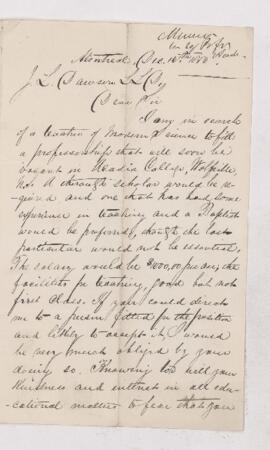 Montreal, Dec. 16th 1880
J. L. Dawson LL D
Dear Sir
I am in search
of a teacher of Modern Science to fill
a professorship that will soon be
vacant in Acadia College, Wolfville,
N.S. A through scholar would be re-
quired and one that has had some
experience in teaching and a Baptist
would be preferred, though the last
particular would not be essential.
The salary would be $1000,00 per an, the
facilities for teaching, good but not
first class. If you could direct
me to a person fitted for the position
and likely to accept it, I would
be very much obliged by your
doing so. Knowing too well your
kindness and interest in all edu-
cational matter to fear that you